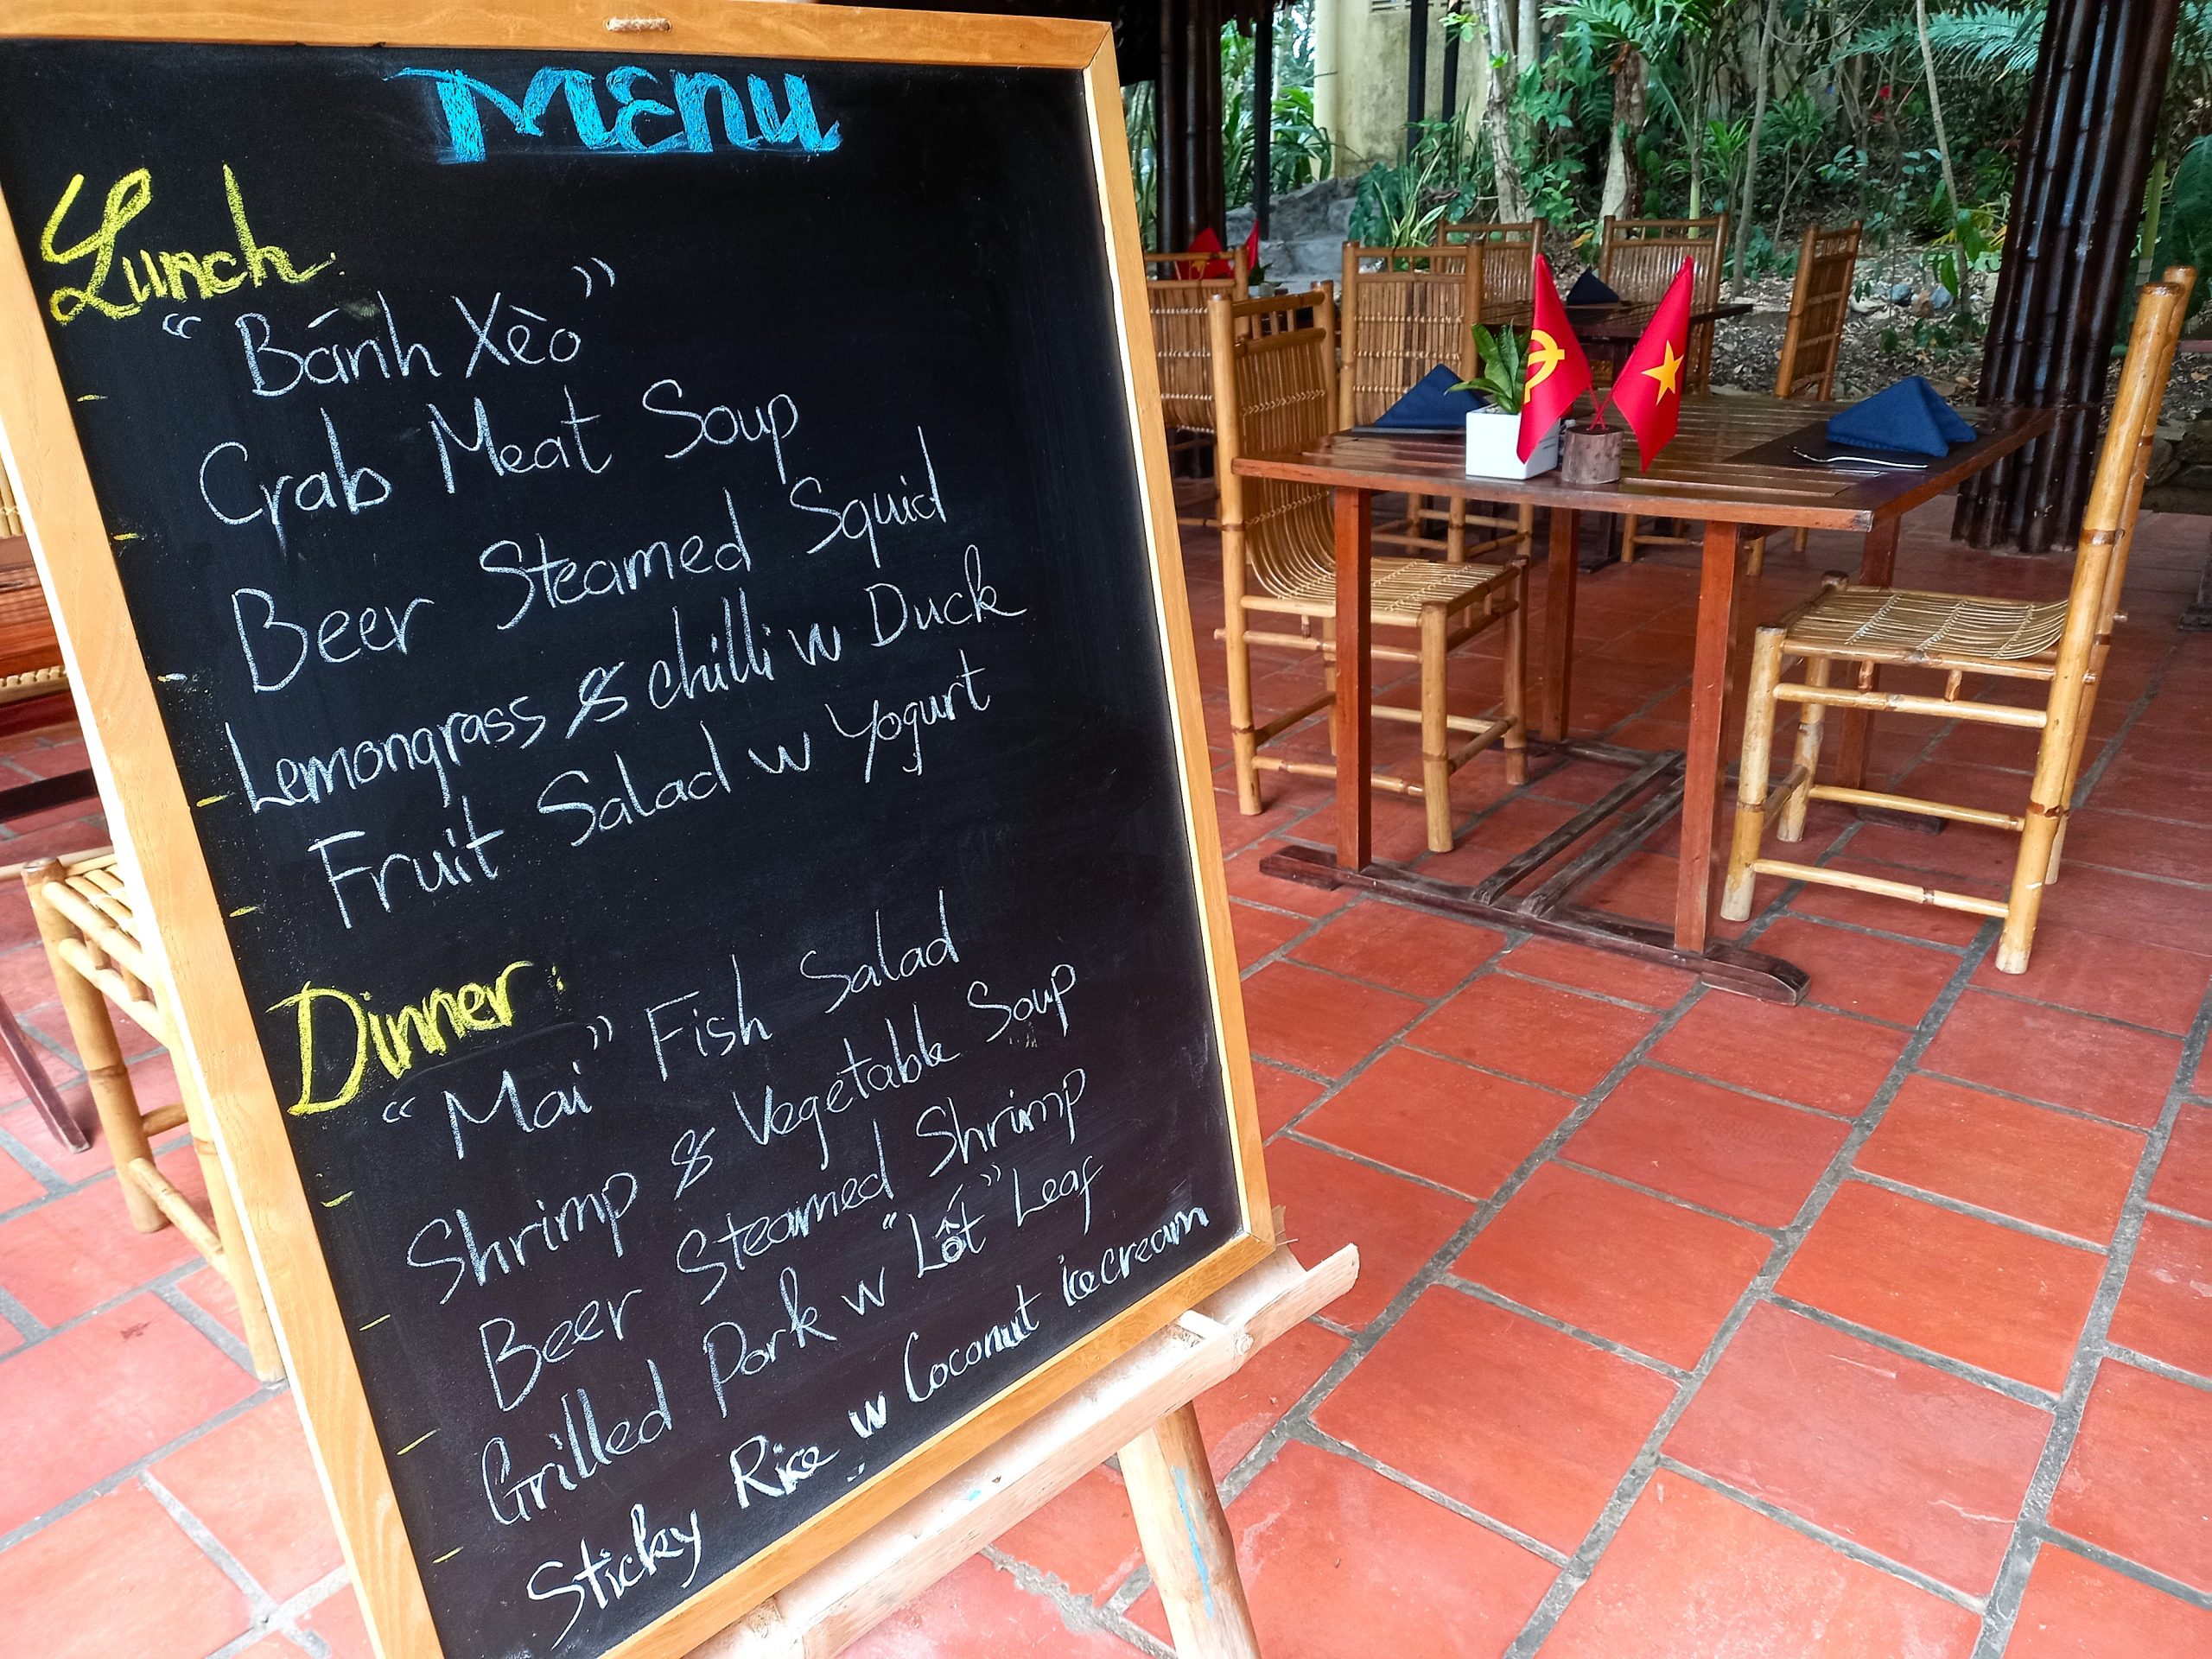 Menu
Lunch:
"Bánh Xèo"
- Crab Meat Soup
- Beer Steamed Squid
- Lemongrass & chilli w Duck
- Fruit Salad w Yogurt
Dinner:
"Mai" Fish Salad
- Shrimp & Vegetable Soup
- Beer Steamed Shrimp
- Grilled Pork w "Lốt" Leaf
- Sticky Rice w Coconut icecream